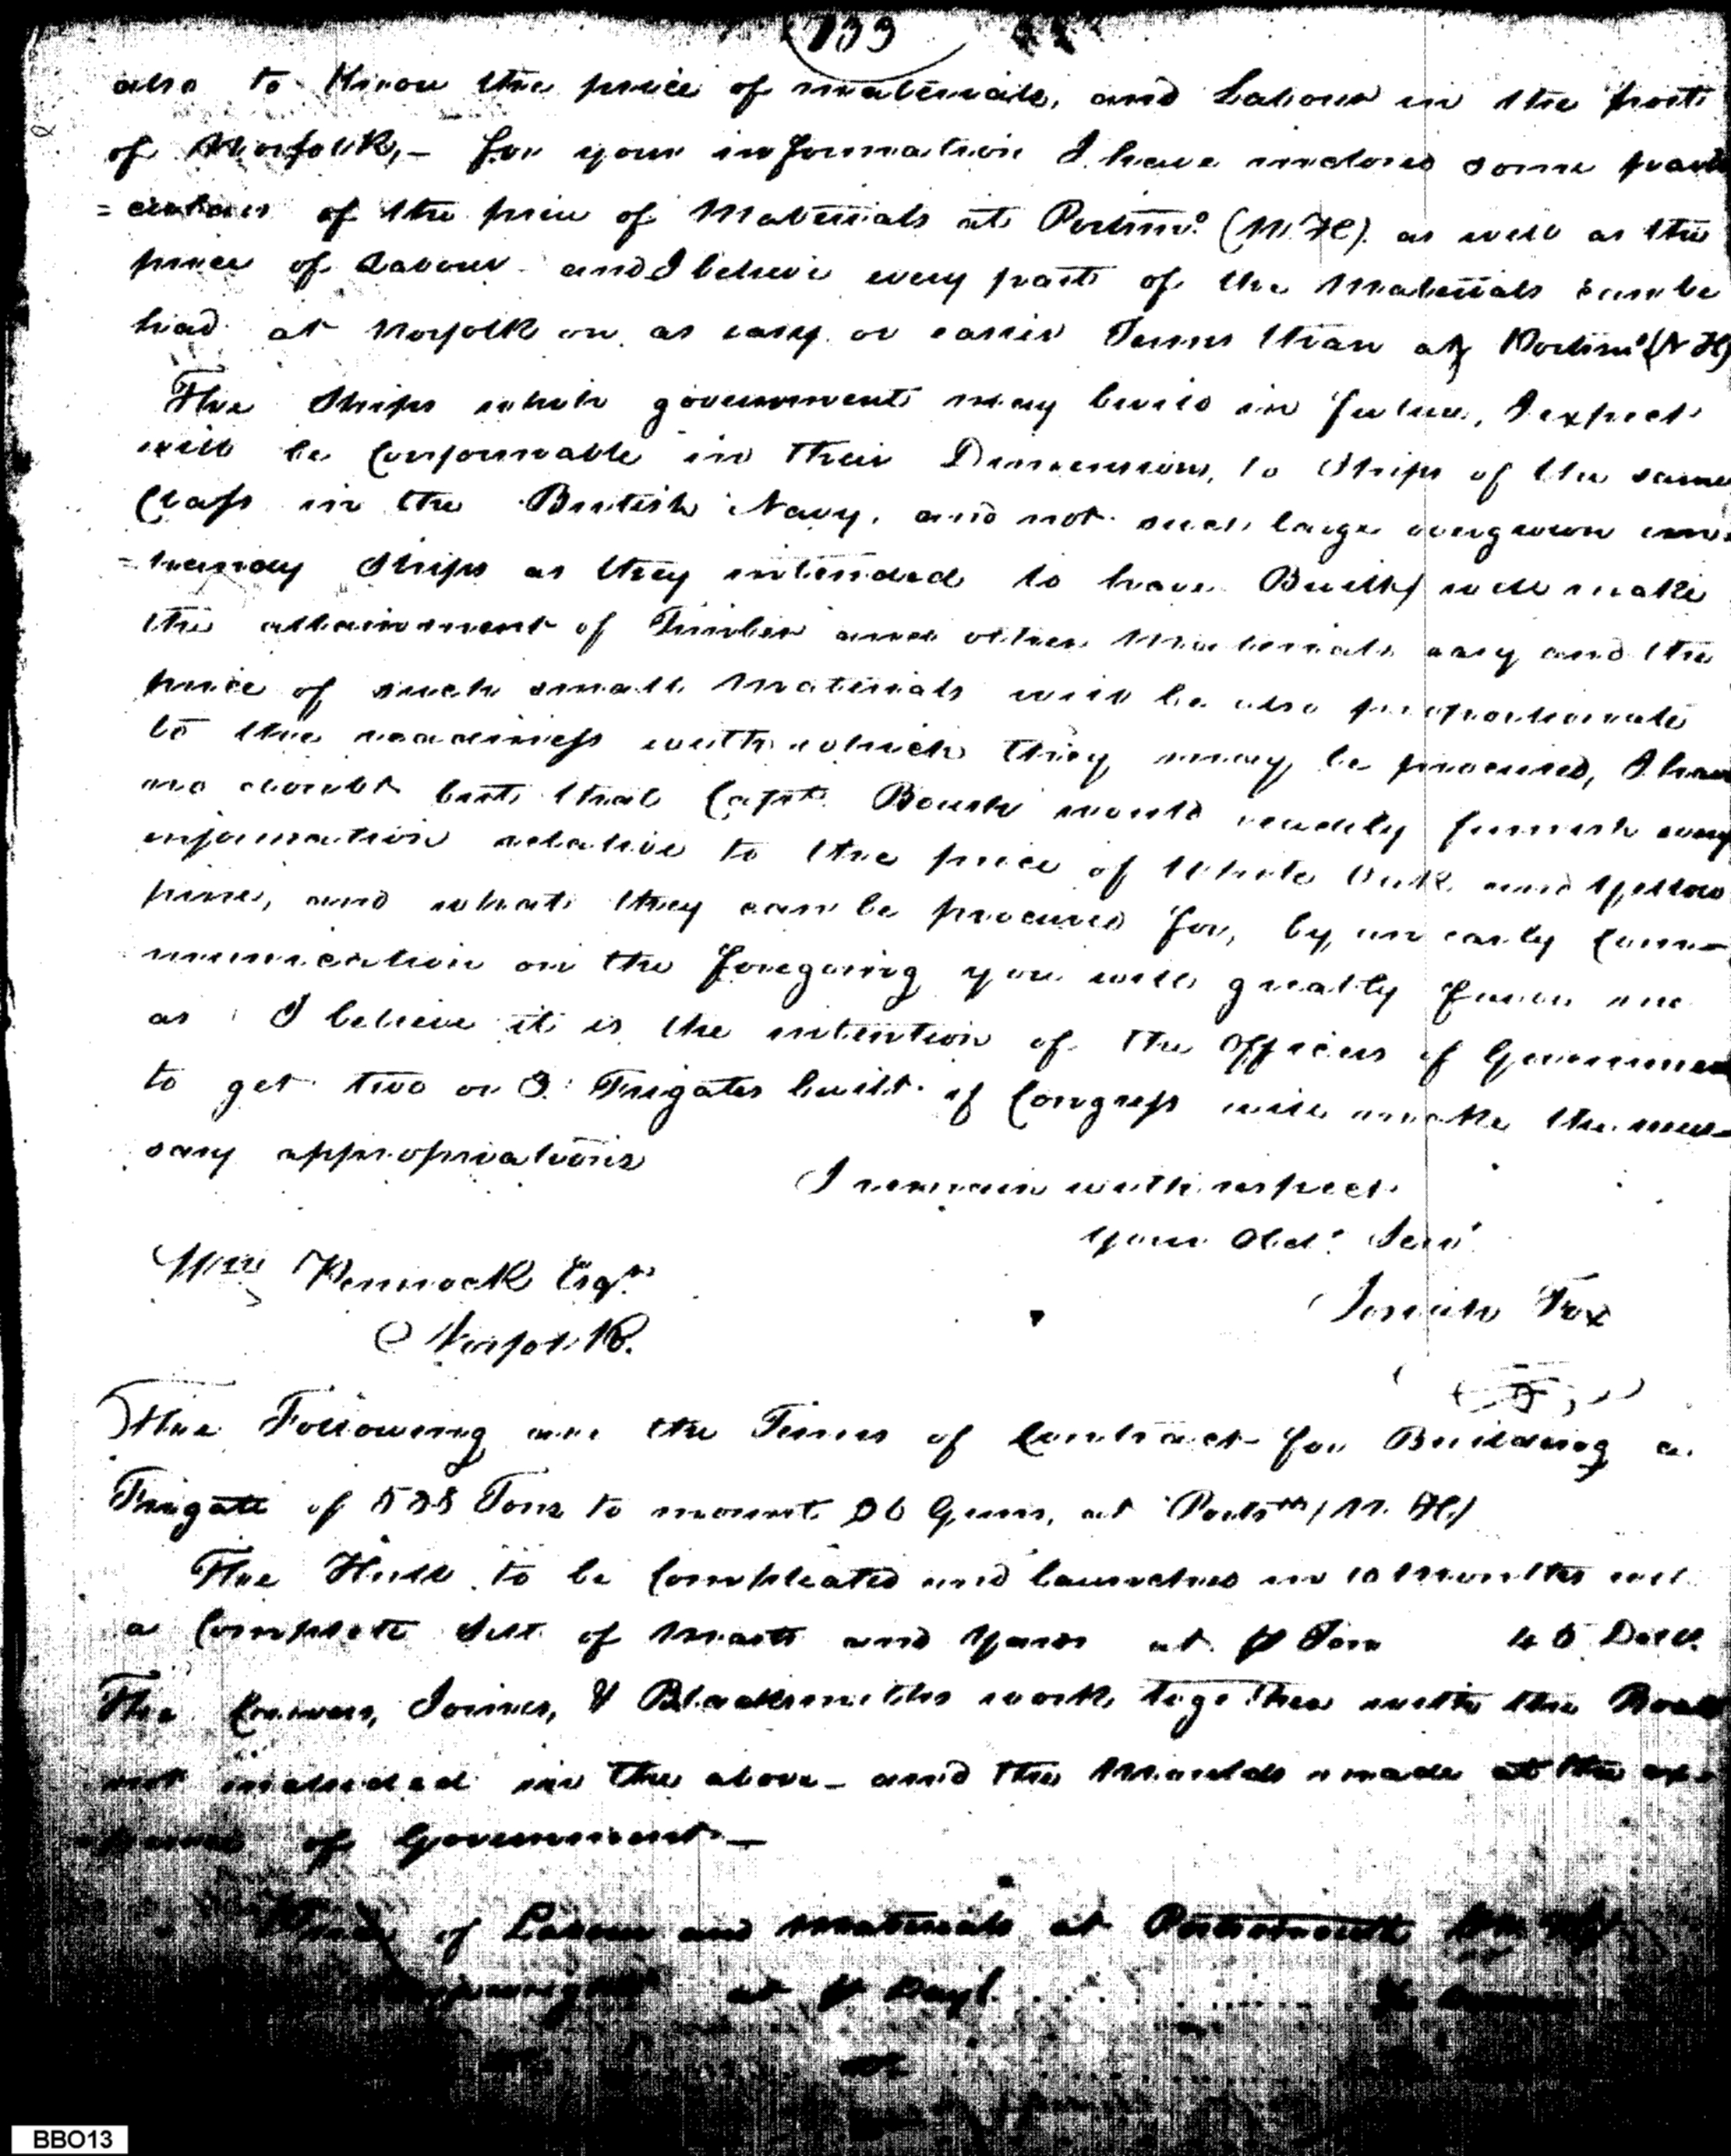 133
also to Know the price of materials, and Labour in the port
of Norfolk,— for your information I have inclosed some parti
=culars of the price of Materials at Portsmo. (N. H). as well as the
price of Labour and I believe every part of the Materials can be
had at Norfolk on as easy or easier Terms than at Portsmo (N H)
The Ships which government may build in future, I expect
will be Conformable in their Dimensions, to Ships of the same
Class in the British Navy, and not such large overgrown un=
=handy Ships as they intended to have Built, will make
the attainment of Timber and other Materials easy and the
price of such small Materials will be also proportionate
to the readiness with which they may be procured, I have
no doubt but that Capt. Boush would readily furnish every
information relative to the price of White Oak and Yellow
pine, and what they can be procured for, by an early Com—
munication on the foregoing you will greatly favor me
as I believe it is the intention of the Officers of Government
to get two or 3 Frigates built if Congress will make the neces—
sary appropriations
I remain with respect
Your Obdt. Servt.
Josiah Fox
Wm Pennock Esqr.
Norfolk.
The Following are the Terms of Contract for Building a
Frigate of Tons to mount Guns, at Portsmth (N. H)
The Hull to be Compleated and Launched in 10 Months
a Complete Sett of Masts and Yards at ⅌ Ton 45 Dolls.
The Carvers, Joiners, & Blacksmiths work together with the Boats
not included in the above— and the Moulds made at the ex=
=pence of Government—
of Labour and Materials at Portsmouth
at ⅌ Day
BBO13